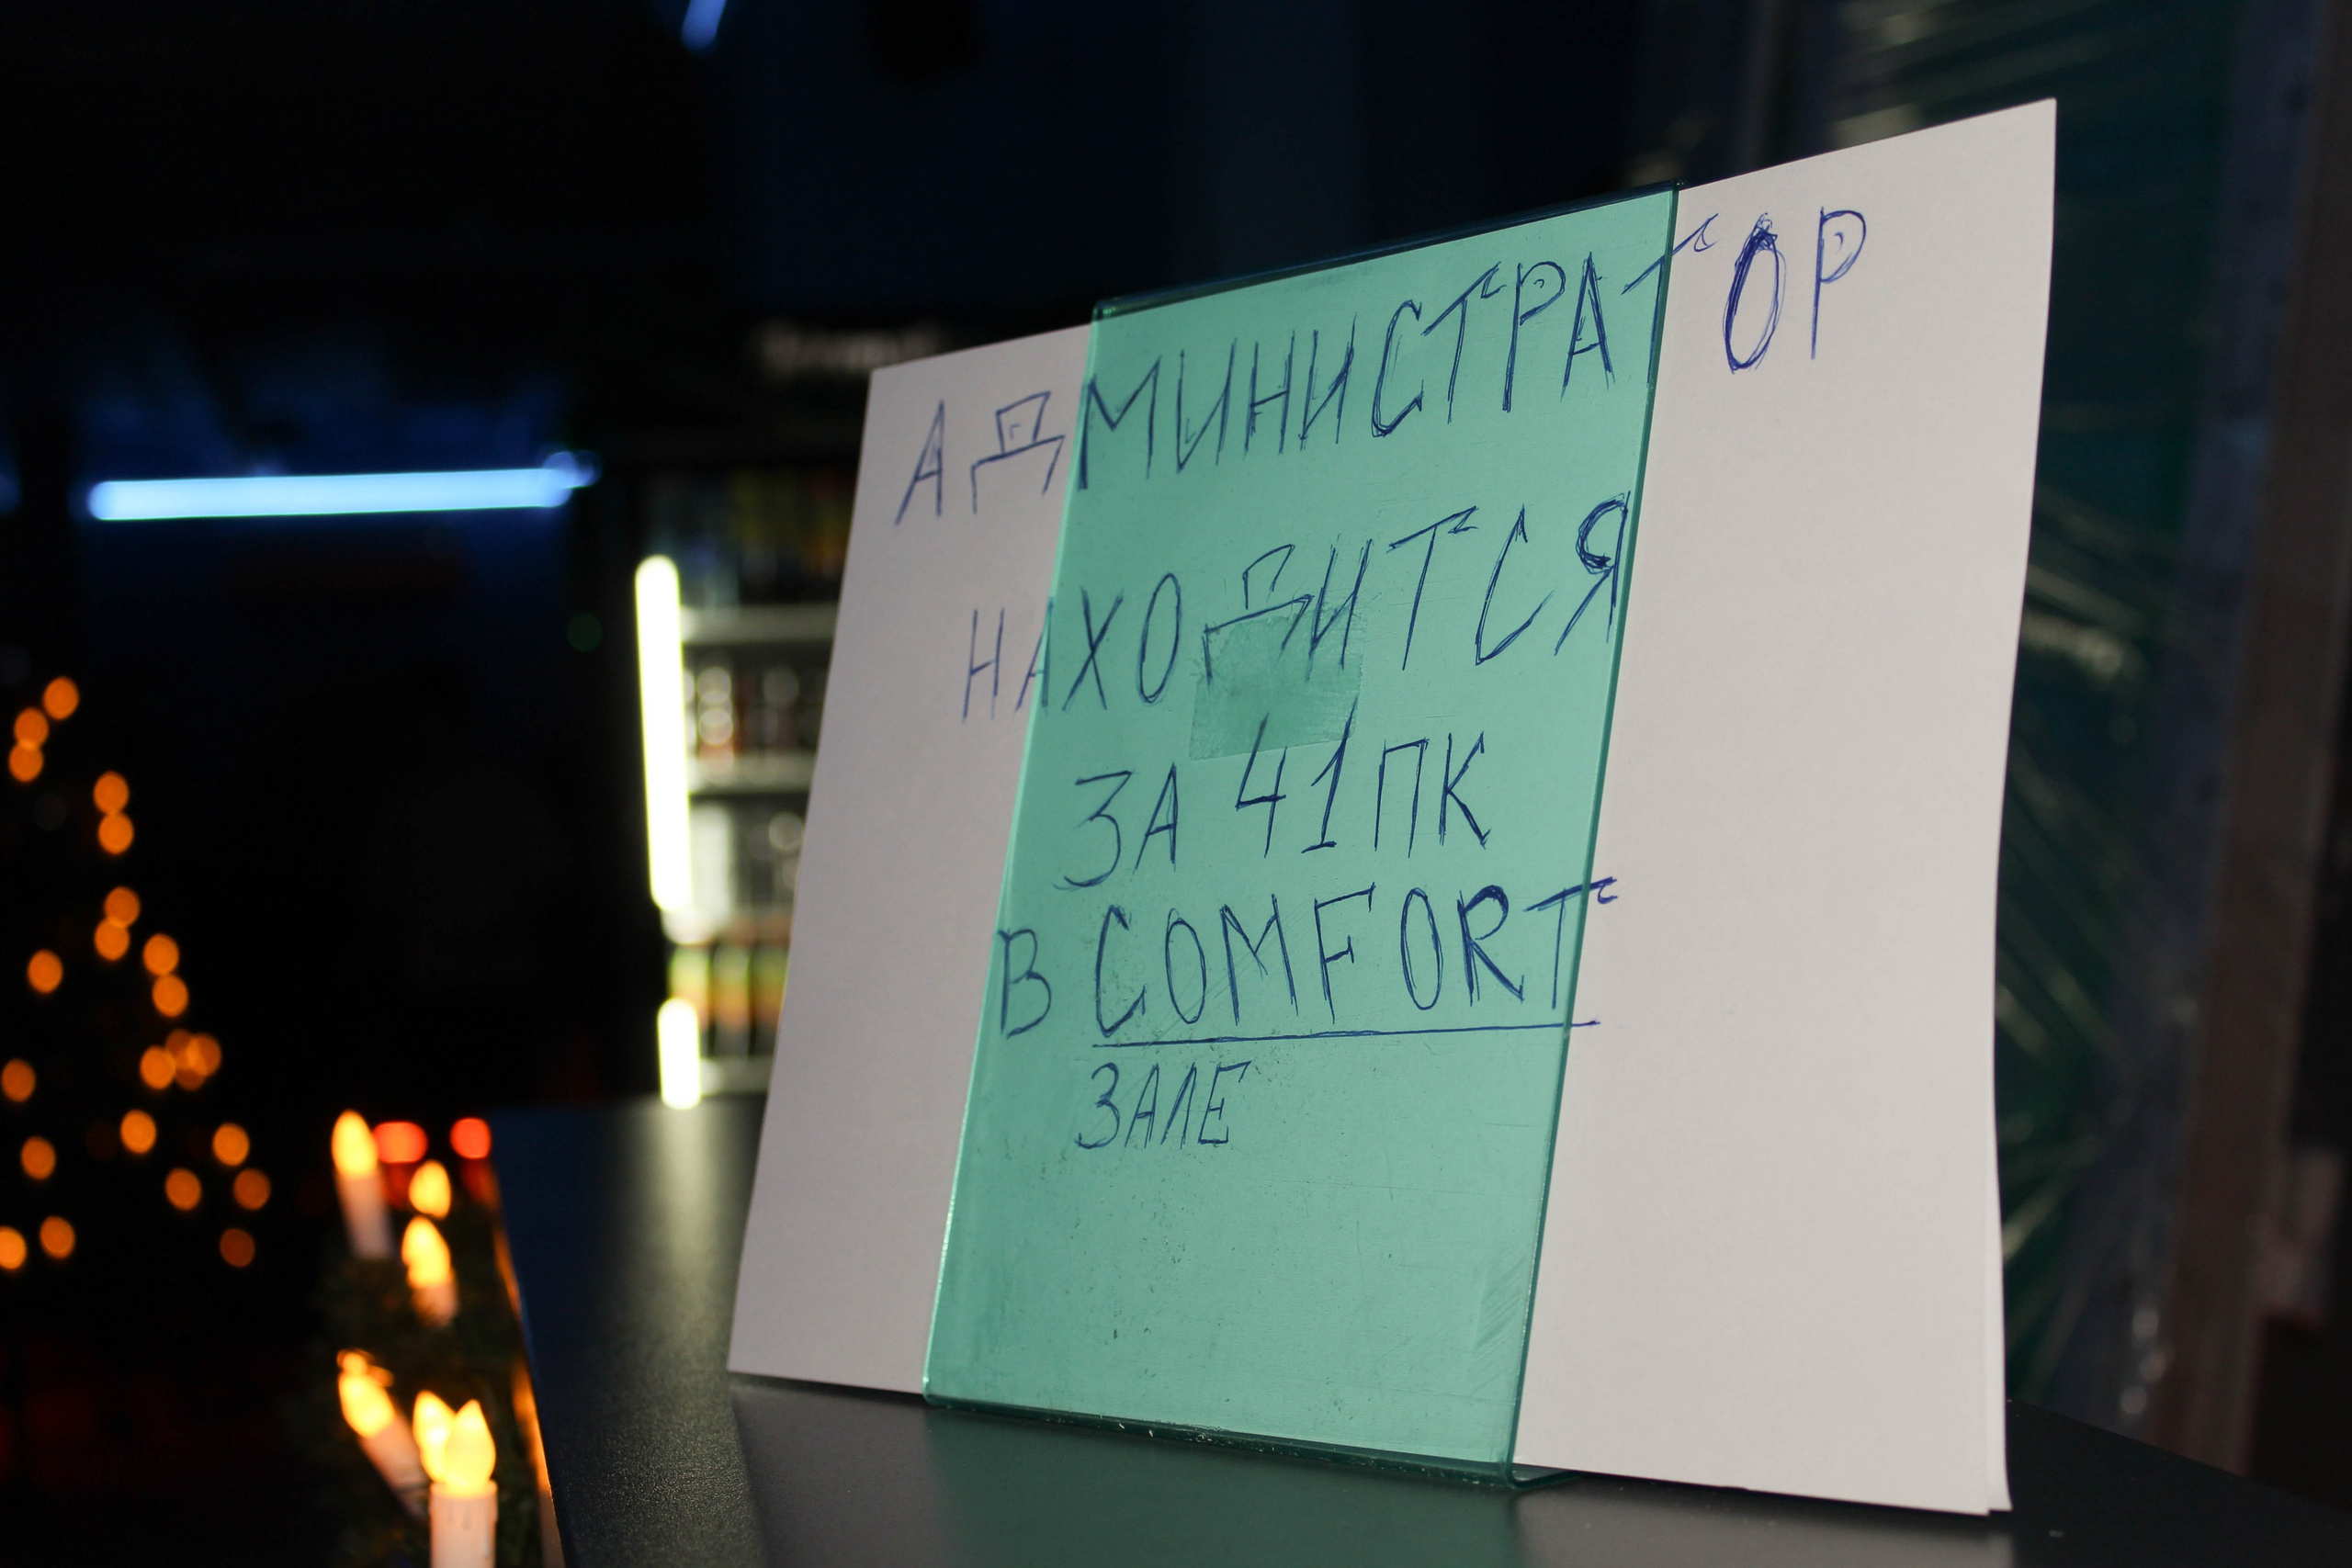 АДМИНИСТРАТОР
НАХОДИТСЯ
ЗА 41ПК
В COMFORT
ЗАЛЕ